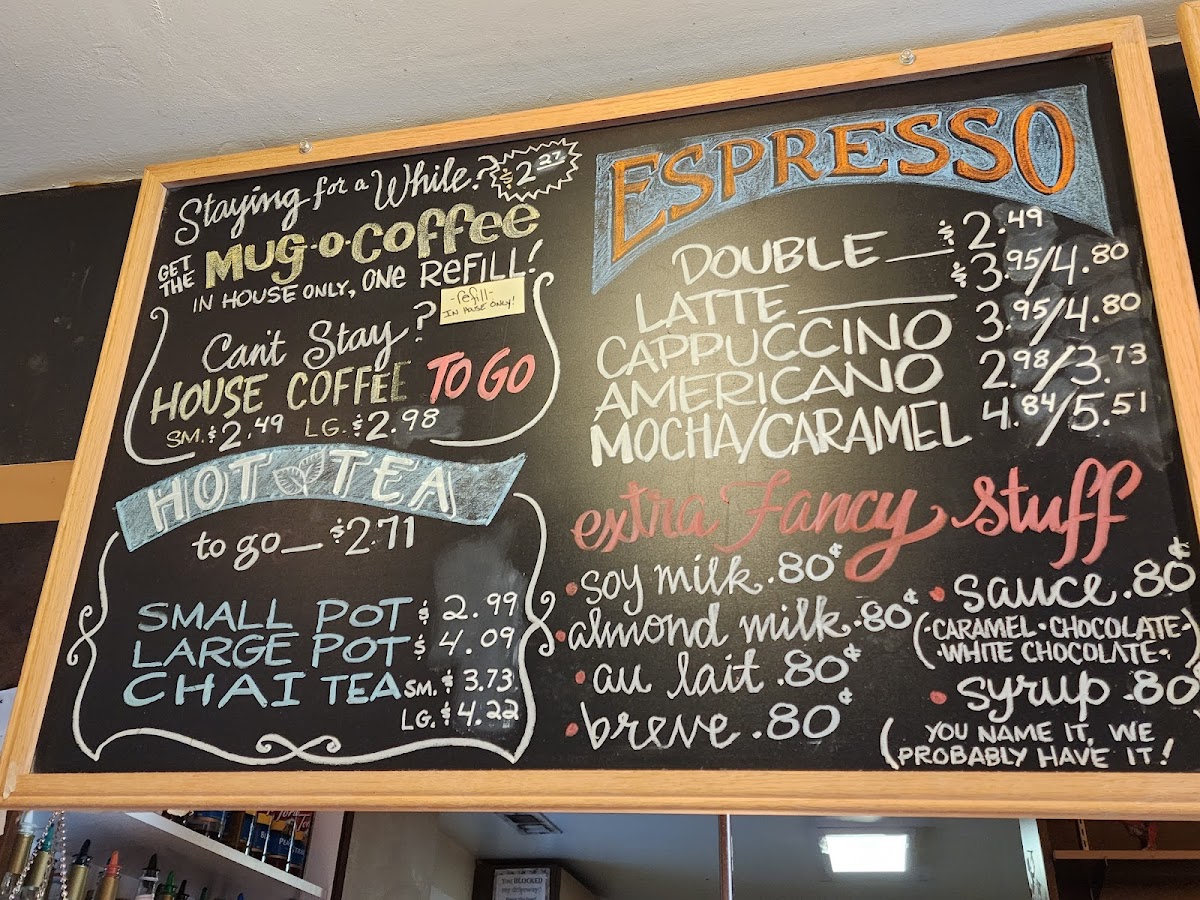 Staying for a While? $2.27
GET THE Mug-o-Coffee
IN HOUSE ONLY, ONE REFILL!
-refill-
IN HOUSE ONLY!
Can't Stay?
HOUSE COFFEE TO GO
SM. $2.49 LG. $2.98
HOT TEA
to go $2.71
SMALL POT $2.99
LARGE POT $4.09
CHAI TEA SM. $3.73
LG. $4.22
ESPRESSO
DOUBLE $2.49
LATTE $3.95/4.80
CAPPUCCINO 3.95/4.80
AMERICANO 2.98/3.73
MOCHA/CARAMEL 4.84/5.51
extra Fancy stuff
• soy milk .80¢
• almond milk .80¢
• au lait .80¢
• breve .80¢
• sauce .80¢
(•CARAMEL•CHOCOLATE•
•WHITE CHOCOLATE•)
• syrup .80
(YOU NAME IT, WE
PROBABLY HAVE IT!
BLOCKED